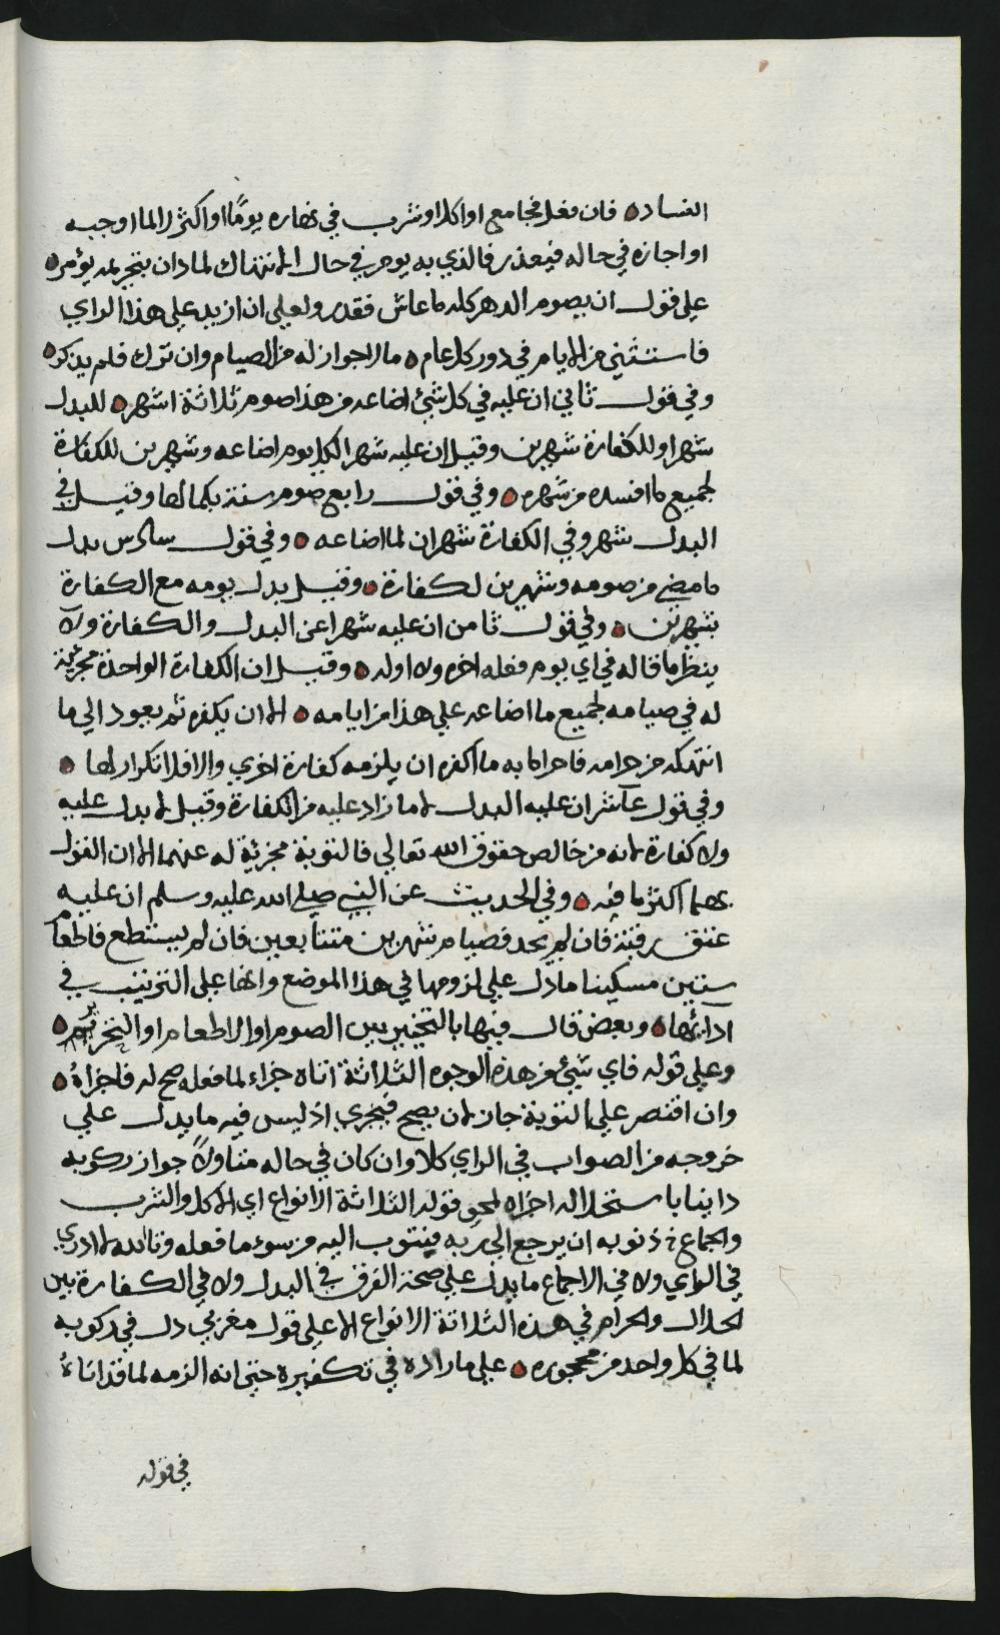 الفساد فان فعل فجامع او اكل او شرب في نهاره يومًا او اكثر لا لما اوجبه
او اجازه في حاله فيعذر فالذي به يومر في حال الانتهاك لما دان بتحريمه يؤمر
على قول ان يصوم الدهر كله ما عاش فقدر ولعلي ان ازيد على هذا الراي
فاستثني من الايام في دور كل عام ما لا جواز له من الصيام وان ترك فلم يذكره
وفي قول ثاني ان عليه في كل شئ اضاعه من هذا صوم ثلاثة اشهر للبدل
شهرا وللكفارة شهرين وقيل ان عليه شهرا لكل يوم اضاعه وشهرين للكفارة
لجميع ما افسده من شهره وفي قول رابع صوم سنة بكمالها وقيل في
البدل شهر وفي الكفارة شهران لما اضاعه وفي قول سادس بدل
ما مضى من صومه وشهرين لكفارة وقيل بدل يومه مع الكفارة
بشهرين وفي قول ثامن ان عليه شهرا عن البدل والكفارة ولا
ينظر ما قاله في اي يوم فعله اخره ولا اوله وقيل ان الكفارة الواحدة مجزئية
له في صيامه لجميع ما اضاعه على هذا من ايامه الا ان يكفره ثم يعود الى ما
انتهكه من حرامه فاحرا به ما اكفره ان يلزمه كفارة اخرى والا فلا تكرار لها
وفي قول عاشر ان عليه البدل لا ما زاد عليه من الكفارة وقيل لا بدل عليه
ولا كفارة لانه من خالص حقوق الله تعالى فالتوبة مجزئية له عنهما الا ان القول
بهما اكثر ما فيه وفي الحديث عن النبي صلى الله عليه وسلم ان عليه
عتق رقبة فان لم يجد فصيام شهرين متتابعين فان لم يستطع فاطعام
ستين مسكينا ما دل على لزومها في هذا الموضع وانها على الترتيب في
ادائها وبعض قال فيها بالتخيير بين الصوم او الاطعام او التحرير
وعلى قوله فاي شئ من هذه الوجوه الثلاثة اتاه جزاء لما فعله صح له فاجزاهُ
وان اقتصر على التوبة جاز لان يصح فيجزي اذ ليس فيه ما يدل على
خروجه من الصواب في الراي كلا وان كان في حاله متاولاً جواز ركوبه
داينا باستحلاله اجزاه لمحو قوله الثلاثة الانواع اي الاكل والشرب
والجماع من ذنوبه ان يرجع الى ربه فيتوب اليه من سوء ما فعله وتالله لا ادري
في الراي ولا في الاجماع ما يدل على صحة الفرق في البدل ولا في الكفارة بين
الحلال والحرام في هذه الثلاثة الانواع الا على قول مغربي دل في ركوبه
لما في كل واحد من محجوره على ما راده في تكفيره حتى انه الزمه لما قد اتاهُ
في قوله